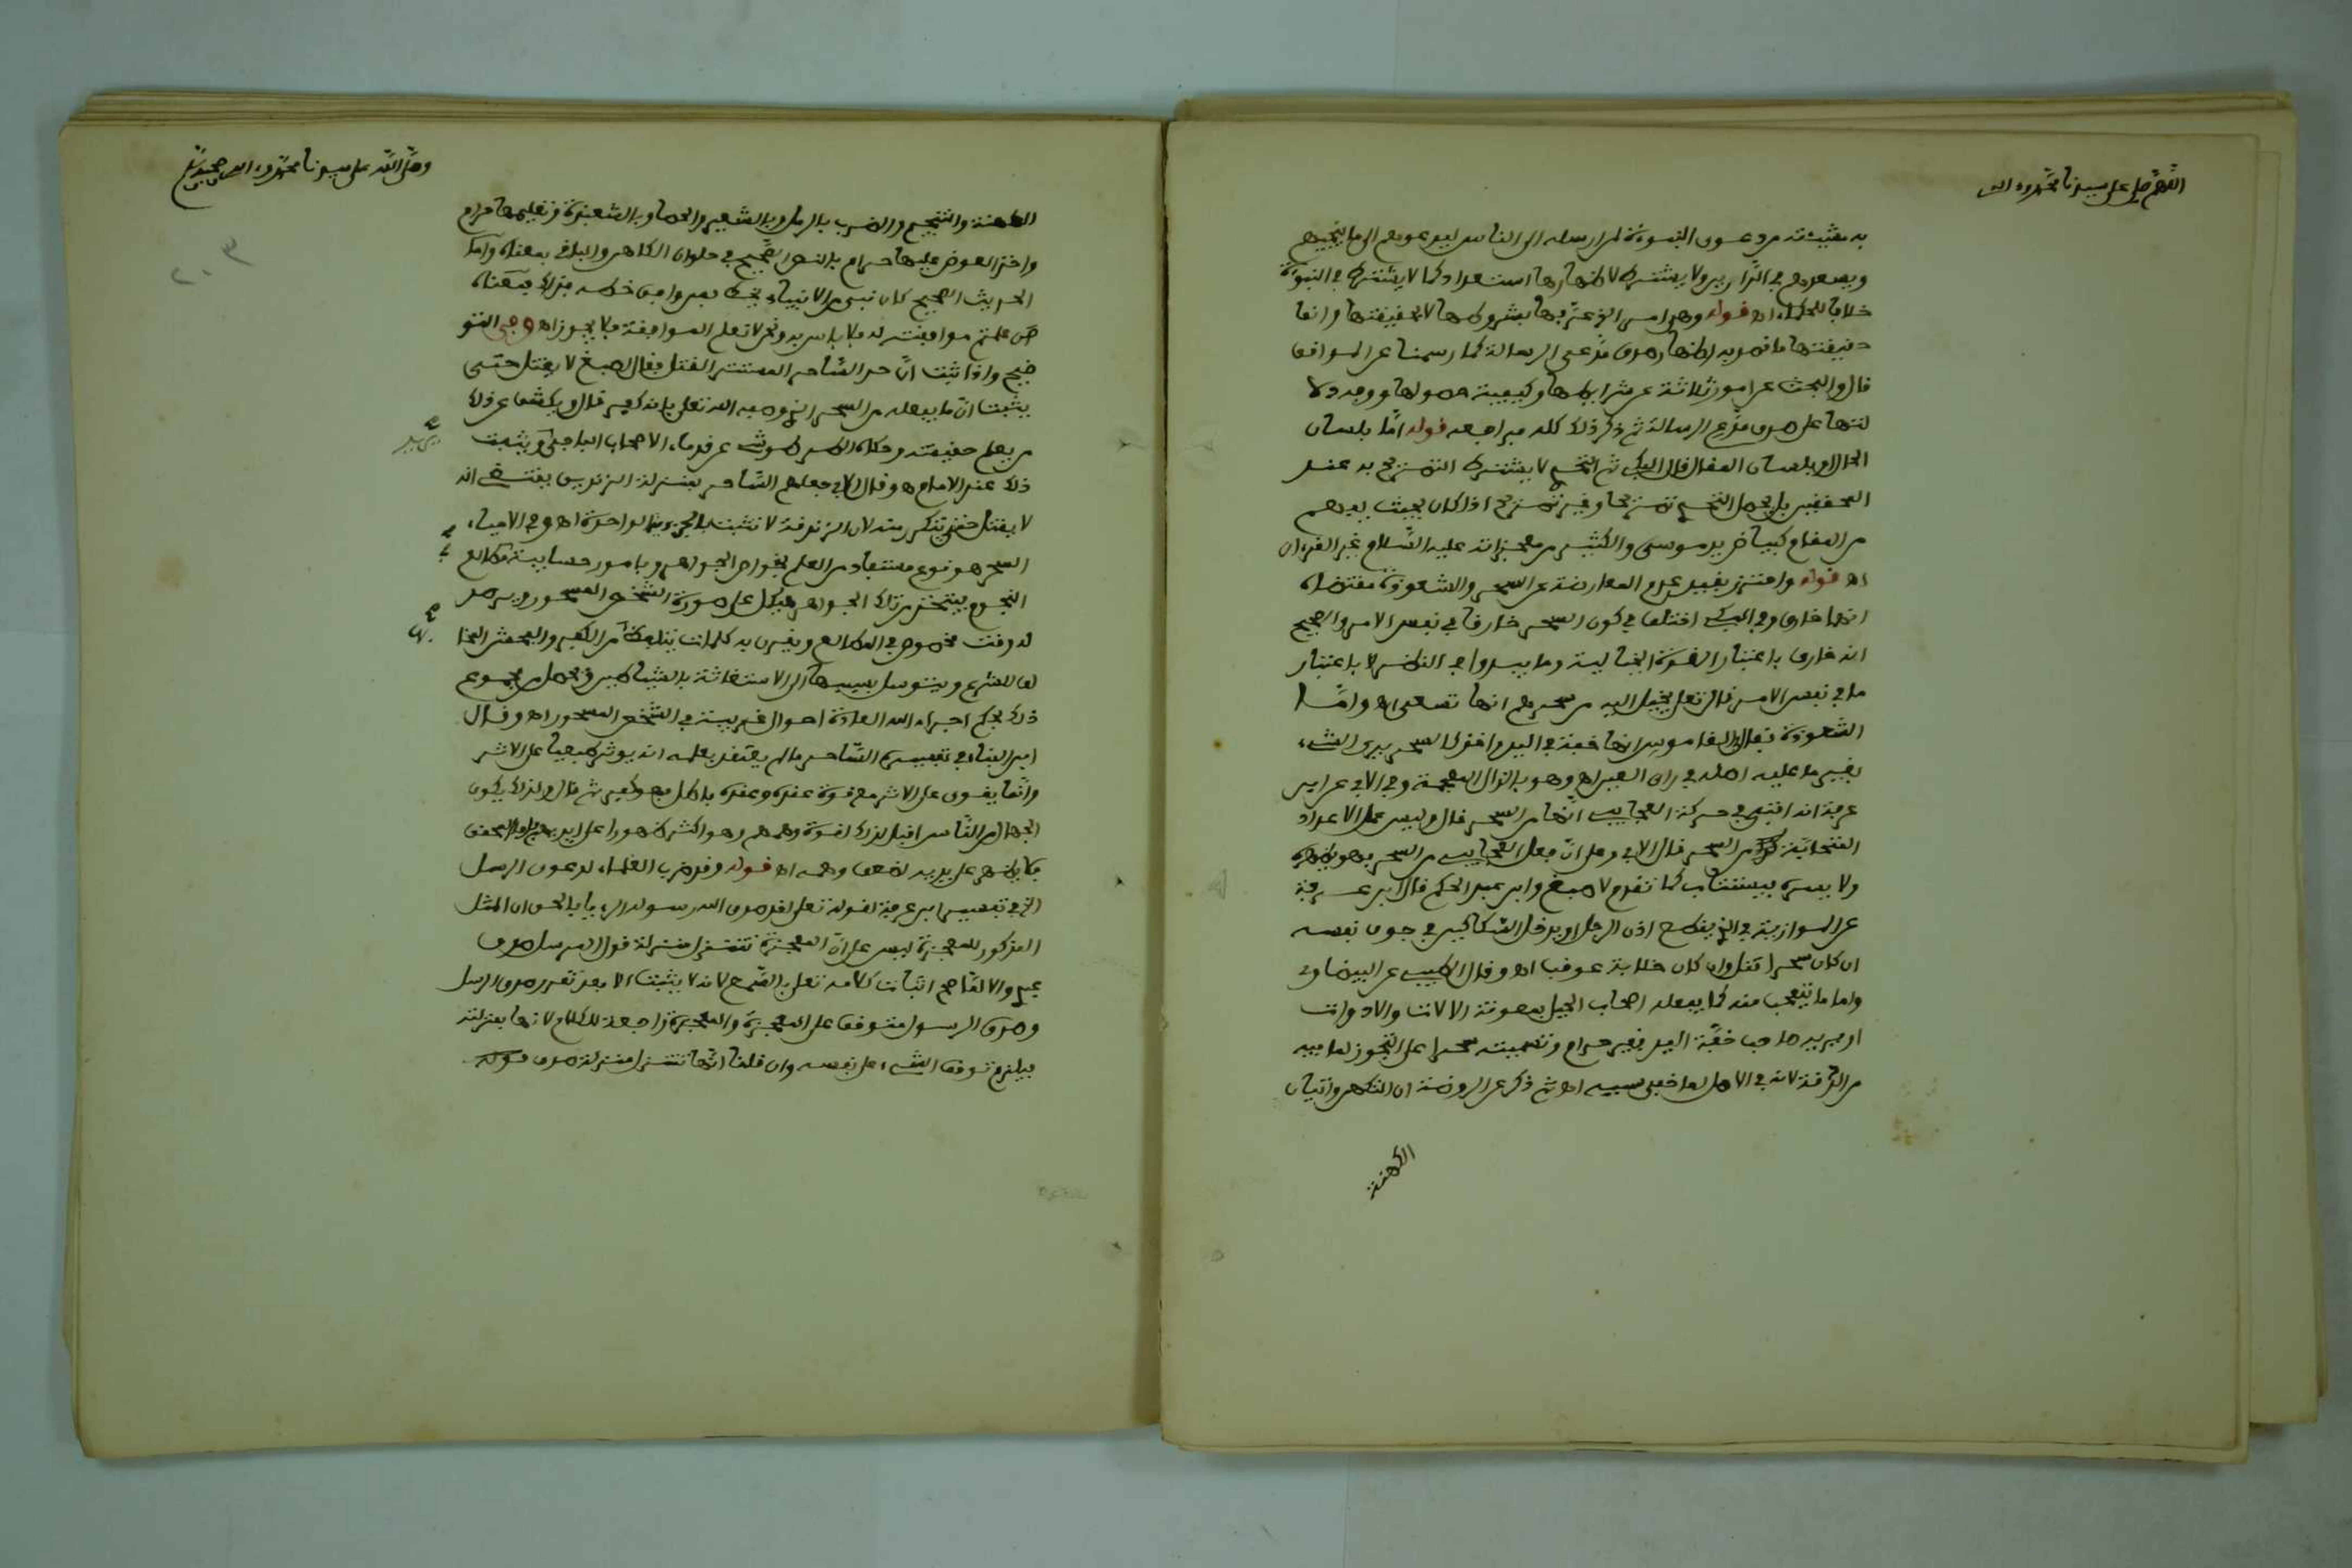 اللهم صل على سيدنا محمد وءاله
به مشيئته من دعوى النبوءة لمن ارسله الى الناس ليدعوهم الى ما ينجيهم
ويسعدهم في الدارين ولا يشترط لاظهارها استعداد كما لا يشترط في النبوءة
خلافا للحكماء اه قوله وهذا من الذي عرّفها بشروطها لا بحقيقتها وانما
حقيقتها ما قصد به اظهار صدق مدّعي الرسالة كما رسمنا عن المواقف
قال والبحث عن امور ثلاثة عن شرايطها وكيفية حصولها ووجه دلا
لتها على صدق مدّعي الرسالة ثم ذكر ذلك كله فراجعه قوله امّا بلسان
الحال او بلسان المقال قال البكي ثم التحدي لا يشترط التصريح به عند
المحققين بل يحصل التحدي تصريحا وغير تصريح اذا كان بحيث يفهم
من المقام كبياض يد موسى والكثير من معجزاته عليه السّلام غير القرءان
اه قوله واحترز بقيد عدم المعارضة عن السحر والشعوذة مقتضاه
انهما خارق وفي البكي اختلف في كون السحر خارقا في نفس الامر والصحيح
انه خارق باعتبار القوة الخيالية وما يبدوا في الناظر لا باعتبار
ما في نفس الامر قال تعلى يخيل اليه من سحرهم انها تسعى اه وامّا
الشعوذة فقال في القاموس انها خفة في اليد واخذ كالسحر يرى الشيء
بغير ما عليه اصله في راي العين اه وهو بالذال المعجمة وفي الابي عن ابن
عرفة انه افتى في حركة العجايب انّها من السحر قال وليس عمل الاعداد
المتحابّة من السحر قال الابي وعلى انّ فعل العجايب من السحر فهو يظهره
ولا يسره فيستتاب كما تقدم لاصبغ وابن عبد الحكم قال ابن عرفة
عن الموازية في الذي يقطع اذن الرجل او يدخل السّكاكين في جوف نفسه
ان كان سحرا قتل وان كان خلابة عوقب اه وقال الطيبي عن البيضاوي
واما ما يتعجب منه كما يفعله اصحاب الحيل بمعونة الالات والادوات
او يريه صاحب خفّة اليد فغير حرام وتسميته سحرا على التجوز لما فيه
من الدّقة لانه في الاصل لما خفي سببه اه ثم ذكر عن الروضة ان التكهن واتيان
الكهنة
وصلّى اللّه على سيدنا محمّد وءاله وصحبه وسلم
٢٠٣
الكهنة والتنجيم والضرب بالرمل وبالشعير والحصا وبالشعبذة وتعليمها حرام
واخذ العوض عليها حرام بالنص الصّحيح في حلوان الكاهن والباقي بمعناه وامّا
الحديث الصحيح كان نبي من الانبياء يخط فمن وافق خطه فذاك فمعناه
من علمتم موافقته له فلا باس به ونحن لا نعلم الموافقة فلا يجوز اه وفي التو
ضيح واذا ثبت انّ حد السّاحر المستتر القتل فقال اصبغ لا يقتل حتّى
يثبت انّ ما يفعله من السحر الذي وصفه الله تعلى بانه كفر قال ويكشف عن ذلك
من يعلم حقيقته وحكاه الطرطوشي عن قدماء الاصحاب الباجي ويثبت
ذلك عند الامام اه وقال الابي جعلهم السّاحر بمنزلة الزنديق يقتضي انه
لا يقتل حتى يتكرر منه لان الزندقة لا تثبت بالمرة الواحدة اه وفي الاحياء
السحر هو نوع مستفاد من العلم بخواص الجواهر وبامور حسابية في مطالع
النجوم فيتخذ من تلك الجواهر هيكل على صورة الشخص المسحور ويرصد
له وقت مخصوص في المطالع ويقرن به كلمات يتلفظ بها من الكفر والفحش المخا
لف للشرع ويتوسل بسببها الى الاستغاثة بالشياطين ويحصل من مجموع
ذلك بحكم اجراء الله العادة احوال غريبة في الشخص المسحور اه وقال
ابن البناء في تفسيره السّاحر ما لم يعتقد بعلمه انه يوثر طبيعيا على الاثر
وانّما يقوى على الاثر مع قوة عقده وعقده باطل فهو كفر ثم قال ولذلك يكون
الجهال من النّاس اقبل لذلك لقوة وهمهم وهو اكثر ظهورا على ايديهم وامّا المحقق
فلا يظهر على يديه لضعف وهمه اه قوله وقد ضرب العلماء لدعوى الرسل
الخ في تفسير ابن عرفة لقوله تعلى لقد صدق الله رسوله الرءيا بالحق ان المثل
المذكور للمعجزة ليس على انّ المعجزة تتنزل منزلة قول المرسل صدق
عبدي والا لما صح اثبات كلامه تعلى بالسّمع لانه لا يثبت الا بعد تقرر صدق الرسل
وصدق الرسول متوقف على المعجزة والمعجزة راجعة للكلام لانها بمنزلته
فيلزم توقف الشيء على نفسه وان قلنا انّها تتنزل منزلة صدق قوله